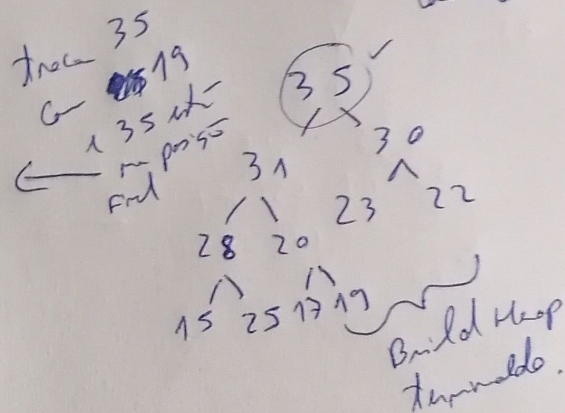 troca 35
com 19
e 35 está
na posição
final
35
31 30
28 20 23 22
15 25 17 19
Build Heap
terminado.